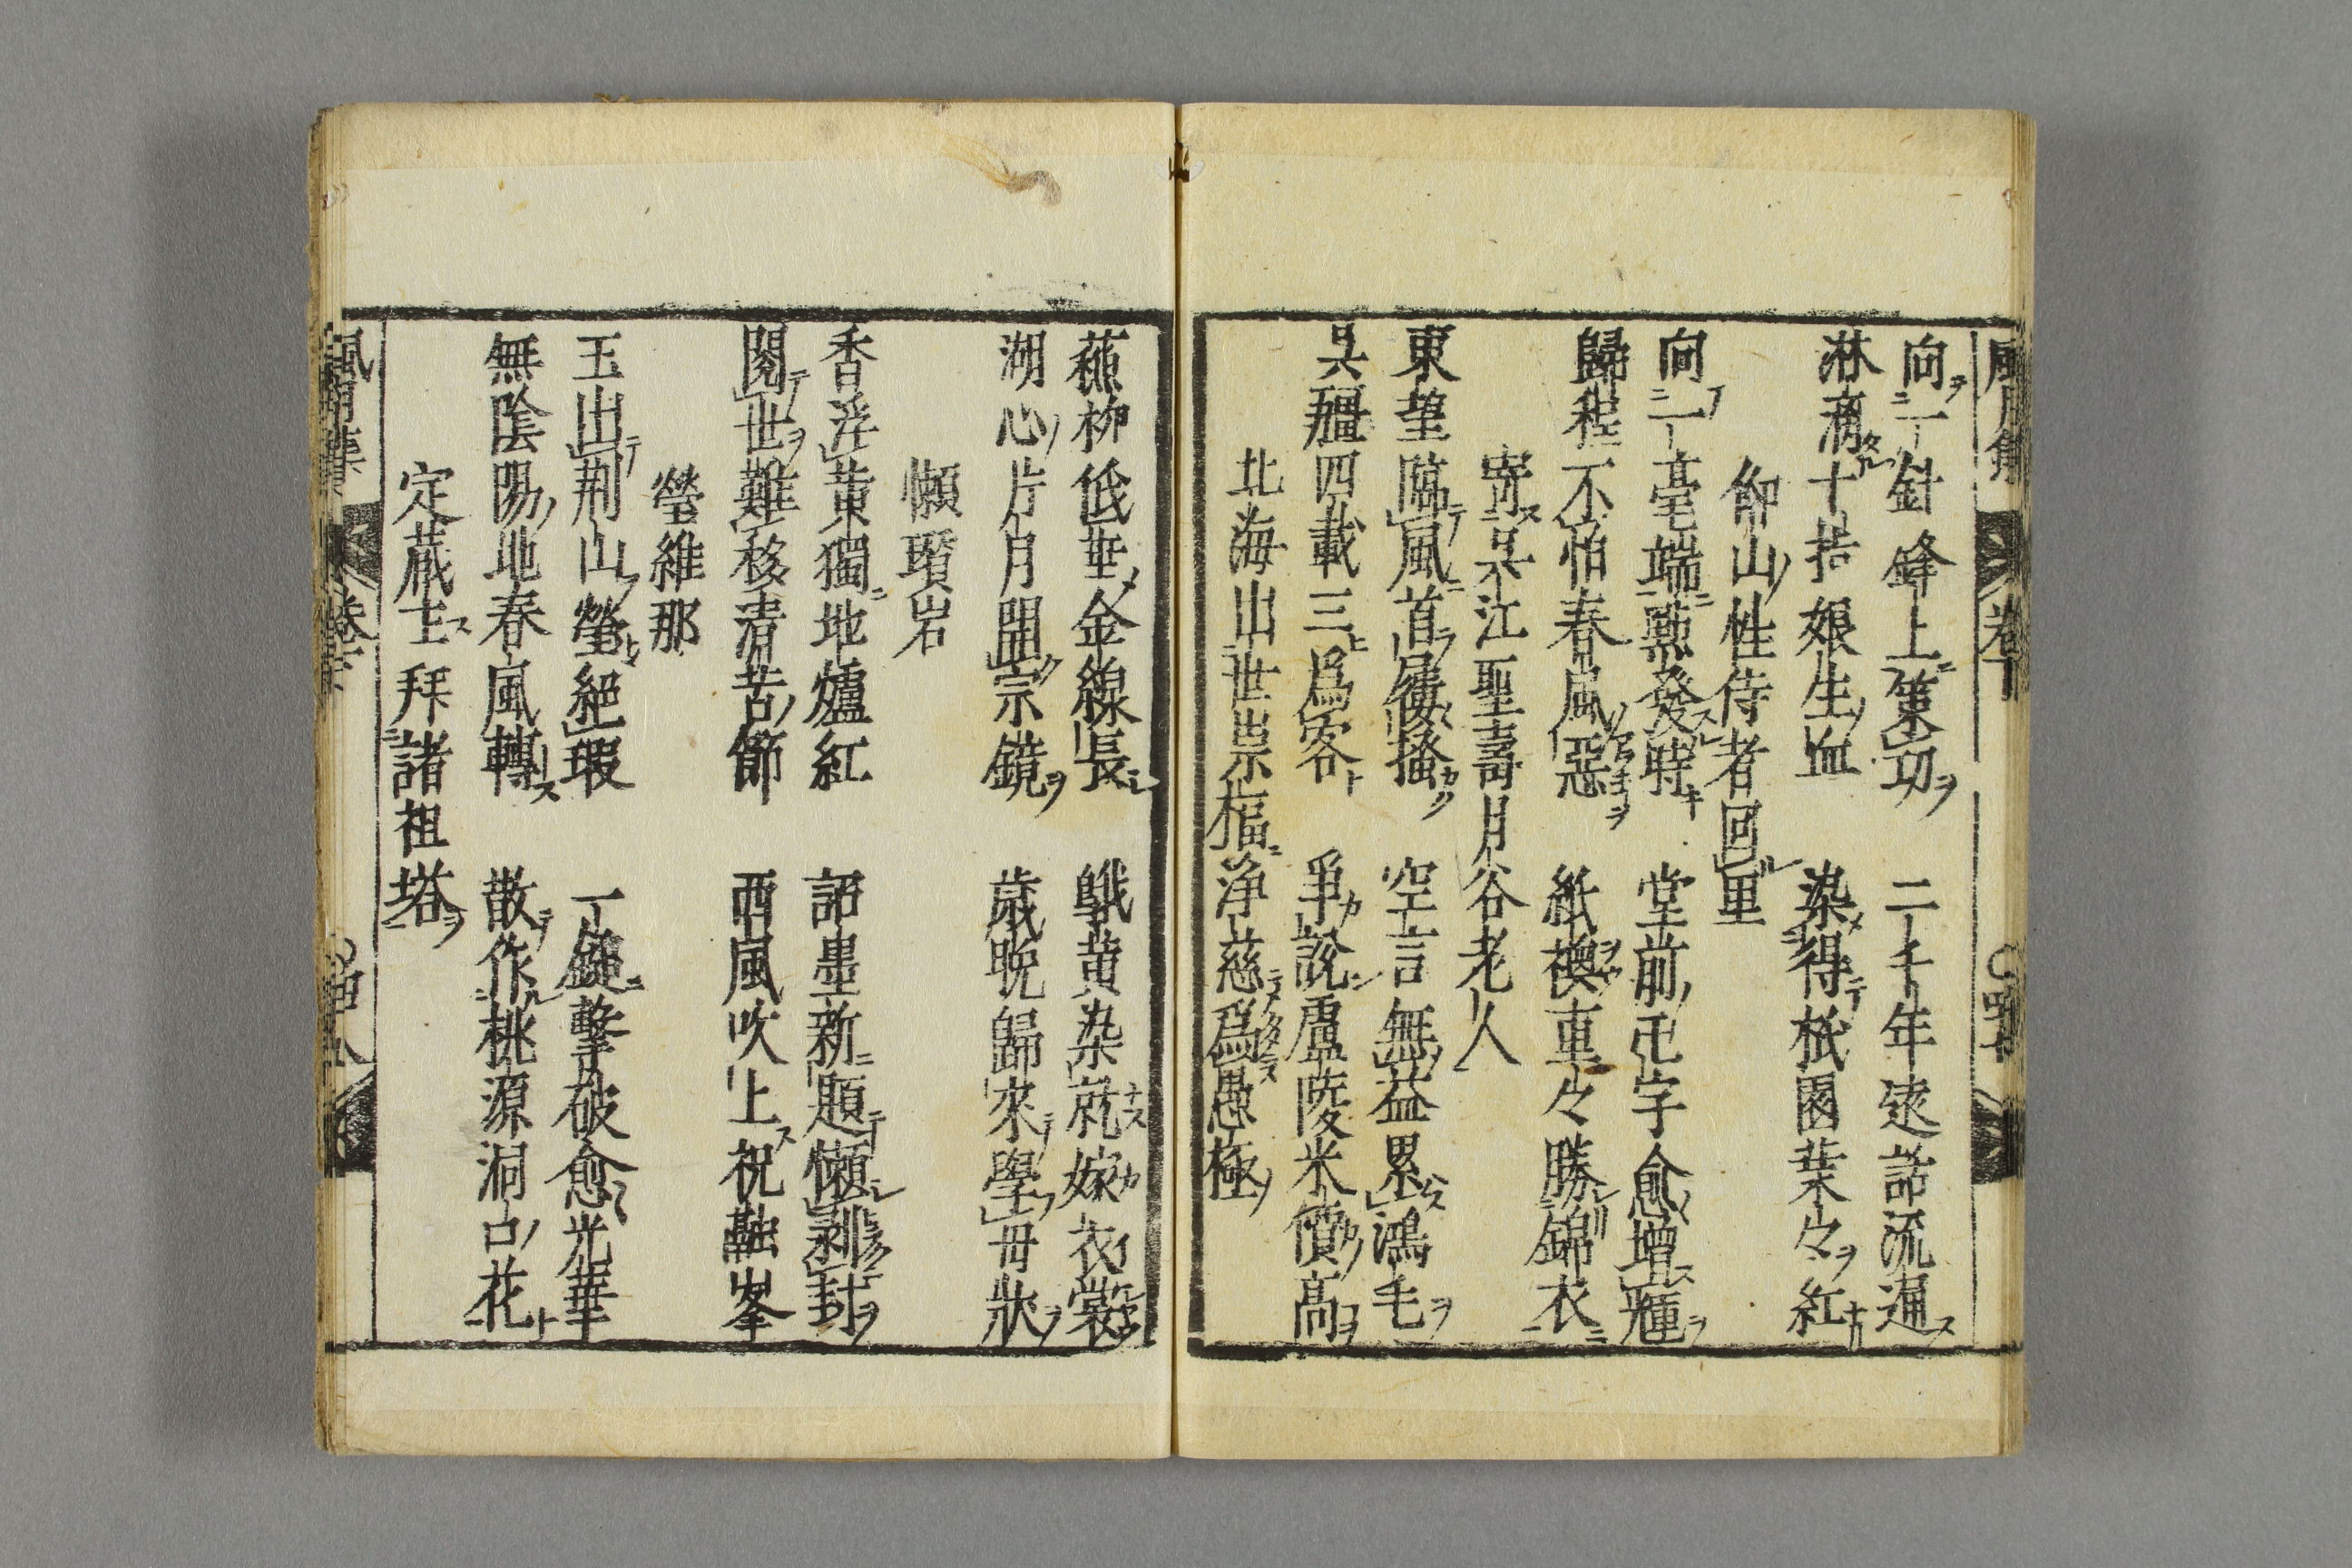 向一針鋒上策功　二千年遠話流通
淋漓十指娘生血　染得桃園葉々紅
仰山性侍者回里
向一毫端藝發時　堂前卍字愈增輝
歸程不怕春風惡　紙襖重々勝錦衣
寄吳江聖壽月谷老人
東望臨風首屢搔　空言無益累鴻毛
吳疆四載三爲客　爭說盧陵米價高
北海出世崇福淨慈爲愚極
蘸柳低垂金線長　鵝黄染就嫁衣裳
湖心片月開宗鏡　歳晩歸來學毋狀
懶瓚岩
香浮黄獨地爐紅　詔墨新題懶剥封
閱世難移清苦節　西風吹上祝融峯
瑩維那
玉出荊山瑩絕瑕　一鎚擊破愈光華
無陰陽地春風轉　散作桃源洞口花
定蔵主拜諸祖塔